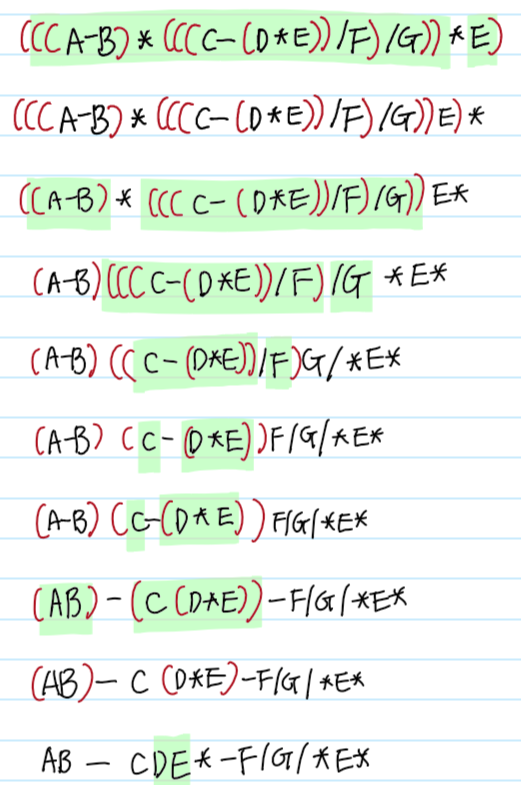 (((A-B)*(((C-(D*E))/F)/G))*E)
(((A-B)*(((C-(D*E))/F)/G))E)*
((A-B)*(((C-(D*E))/F)/G))E*
(A-B)(((C-(D*E))/F)/G *E*
(A-B)((C-(D*E))/F)G/*E*
(A-B)(C-(D*E))F/G/*E*
(A-B)(C-(D*E))F/G/*E*
(AB)-(C(D*E))-F/G/*E*
(AB)-C(D*E)-F/G/*E*
AB-CDE*-F/G/*E*